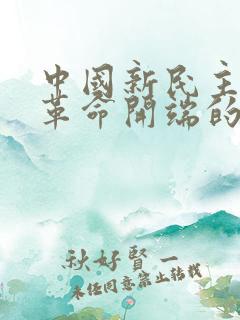 中國新民主
革命開端的
秋好賢一
未经同意禁止转载